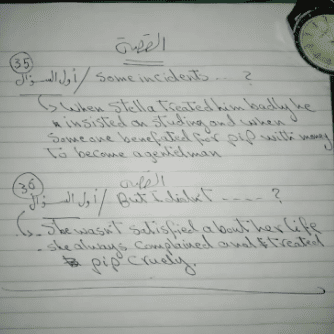 القصة
(35) أول السؤال / Some incidents .... ?
↳ When Stella treated him badly he
insisted on studing and when
someone benefated for pip with money
to become a gentelman
القصة
(36) أول السؤال / But I didn't ----- ?
↳ - She wasn't satisfied about her life
- she always complained and treated
pip cruely.